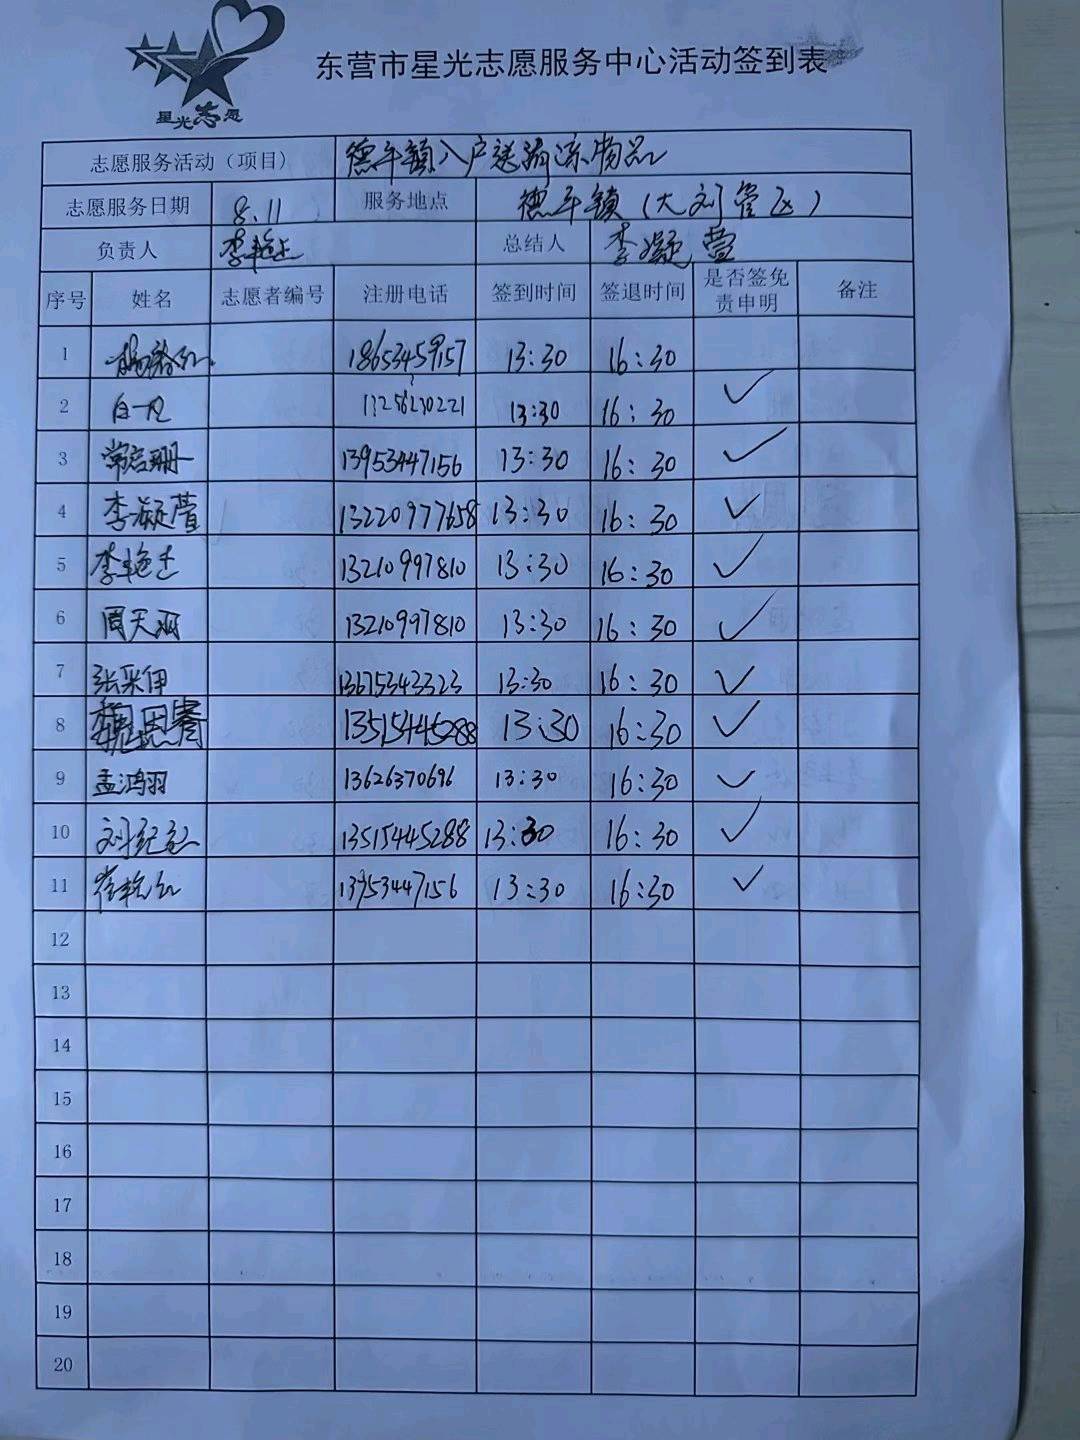 星光志愿
东营市星光志愿服务中心活动签到表
志愿服务活动（项目） 德平镇入户送 物品
志愿服务日期 8.11 服务地点 德平镇(大刘管区)
负责人 李艳 总结人 李凝萱
序号 姓名 志愿者编号 注册电话 签到时间 签退时间 是否签免责申明 备注
1 18653459157 13:30 16:30
2 白一凡 13256230221 13:30 16:30 ✓
3 常启珊 13953447156 13:30 16:30 ✓
4 李凝萱 13220977658 13:30 16:30 ✓
5 李艳 13210997810 13:30 16:30 ✓
6 周天羽 13210997810 13:30 16:30 ✓
7 张采伊 13675343323 13:30 16:30 ✓
8 魏思 13515445288 13:30 16:30 ✓
9 孟鸿羽 13626370696 13:30 16:30 ✓
10 刘 13515445288 13:30 16:30 ✓
11 崔艳红 13953447156 13:30 16:30 ✓
12
13
14
15
16
17
18
19
20